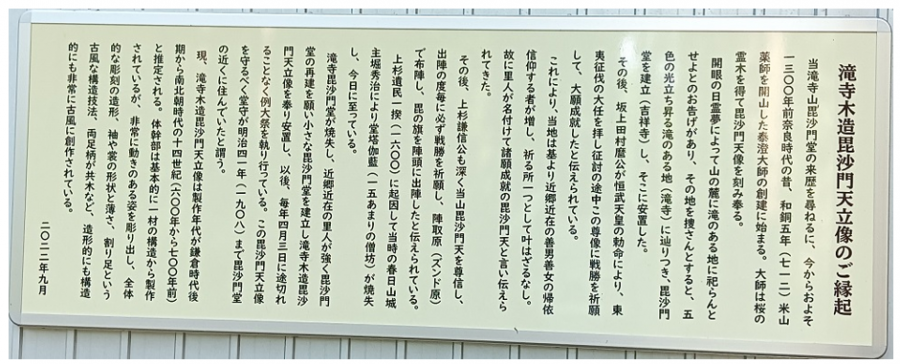 滝寺木造毘沙門天立像のご縁起
当滝寺山毘沙門堂の来歴を尋ねるに、今からおよそ
一三〇〇年前奈良時代の昔、和銅五年（七一二）米山
薬師を開山した泰澄大師の創建に始まる。大師は桜の
霊木を得て毘沙門天像を刻み奉る。
開眼の日霊夢によって山の麓に滝のある地に祀らんと
せよとのお告げがあり、その地を捜さんとすると、五
色の光立ち昇る滝のある地（滝寺）に辿りつき、毘沙門
堂を建立（吉祥寺）し、そこに安置した。
その後、坂上田村麿公が恒武天皇の勅命により、東
夷征伐の大任を拝し征討の途中この尊像に戦勝を祈願
して、大願成就したと伝えられている。
これにより、当地は基より近郷近在の善男善女の帰依
信仰する者が増し、祈る所一つとして叶はざるなし。
故に里人が名付けて諸願成就の毘沙門天と言い伝えら
れてきた。
その後、上杉謙信公も深く当山毘沙門天を尊信し、
出陣の度毎に必ず戦勝を祈願し、陣取原（ズンド原）
で布陣し、毘の旗を陣頭に出陣したと伝えられている。
上杉遺民一揆（一六〇〇）に起因して当時の春日山城
主堀秀治により堂塔伽藍（一五あまりの僧坊）が焼失
し、今日に至っている。
滝寺毘沙門堂が焼失し、近郷近在の里人が強く毘沙門
堂の再建を願い小さな毘沙門堂を建立し滝寺木造毘沙
門天立像を奉り安置し、以後、毎年四月三日に途切れ
ることなく例大祭を執り行っている。この毘沙門天立像
を守るべく堂守が明治四一年（一九〇八）まで毘沙門堂
の近くに住んでいたと謂う。
現、滝寺木造毘沙門天立像は製作年代が鎌倉時代後
期から南北朝時代の十四世紀（六〇〇年から七〇〇年前）
と推定される。体幹部は基本的に一材の構造から製作
されているが、非常に動きのある姿を彫り出し、全体
的な彫刻の造形、袖や裳の形状と薄さ、割り足という
古風な構造技法、両足柄が共木など、造形的にも構造
的にも非常に古風に創作されている。
二〇二二年九月